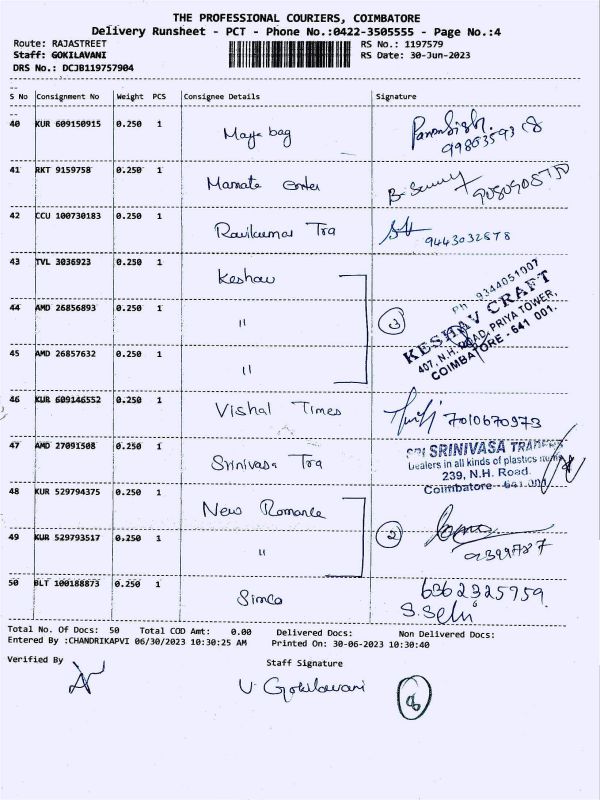 THE PROFESSIONAL COURIERS, COIMBATORE
Delivery Runsheet - PCT - Phone No.:0422-3505555 - Page No.:4
Route: RAJASTREET RS No.: 1197579
Staff: GOKILAVANI RS Date: 30-Jun-2023
DRS No.: DCJB119757904
S No Consignment No Weight PCS Consignee Details Signature
40 KUR 609150915 0.250 1 Maya bag
41 RKT 9159758 0.250 1 Mamata Enter
42 CCU 100730183 0.250 1 Ravikumar Tra 9443032678
43 TVL 3036923 0.250 1 Keshav
Ph : 9344051007
44 AMD 26856893 0.250 1 " 3
KESHAV CRAFT
407, N.H. ROAD, PRIYA TOWER,
COIMBATORE - 641 001.
45 AMD 26857632 0.250 1 "
46 KUR 609146552 0.250 1 Vishal Times 7010670973
47 AMD 27091508 0.250 1 Srinivasa Tra
SRI SRINIVASA
Dealers in all kinds of plastics items
239, N.H. Road.
Coimbatore - 641 001
48 KUR 529794375 0.250 1 New Romance
49 KUR 529793517 0.250 1 " 2
50 BLT 100188873 0.250 1 Simco 6362325959
S. Selvi
Total No. Of Docs: 50 Total COD Amt: 0.00 Delivered Docs: Non Delivered Docs:
Entered By :CHANDRIKAPVI 06/30/2023 10:30:25 AM Printed On: 30-06-2023 10:30:40
Verified By Staff Signature
V. Gokilavani 8